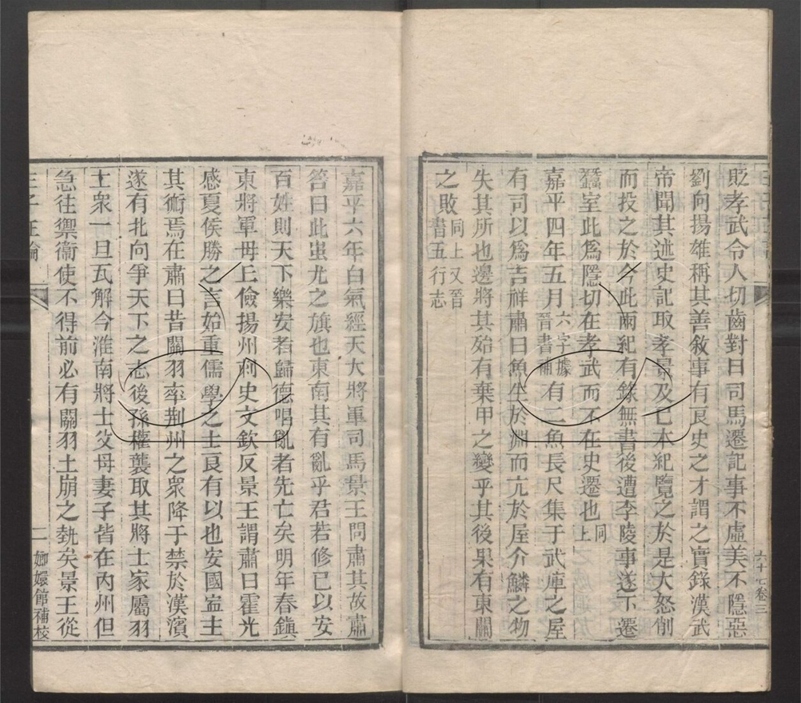 貶孝武令人切齒對曰司馬遷記事不虛美不隱惡
劉向揚雄稱其善敘事有良史之才謂之實錄漢武
帝聞其述史記取孝景及己本紀覽之於是大怒削
而投之於今此兩紀有錄無書後遭李陵事遂下遷
蠶室此爲隱切在孝武而不在史遷也同上
嘉平四年五月六字據晉書補有二魚長尺集于武庫之屋
有司以爲吉祥肅曰魚生於淵而亢於屋介鱗之物
失其所也邊將其殆有棄甲之變乎其後果有東關
之敗同上又晉書五行志
嘉平六年白氣經天大將軍司馬景王問肅其故肅
答曰此蚩尤之旗也東南其有亂乎君若修己以安
百姓則天下樂安者歸德唱亂者先亡矣明年春鎭
東將軍毋丘儉揚州刺史文欽反景王謂肅曰霍光
感夏侯勝之言始重儒學之士良有以也安國寍主
其術焉在肅曰昔關羽率荆州之衆降于禁於漢濱
遂有北向爭天下之志後孫權襲取其將士家屬羽
士衆一旦瓦解今淮南將士父母妻子皆在內州但
急往禦衞使不得前必有關羽土崩之埶矣景王從
王子正論
二
嫏嬛館補校